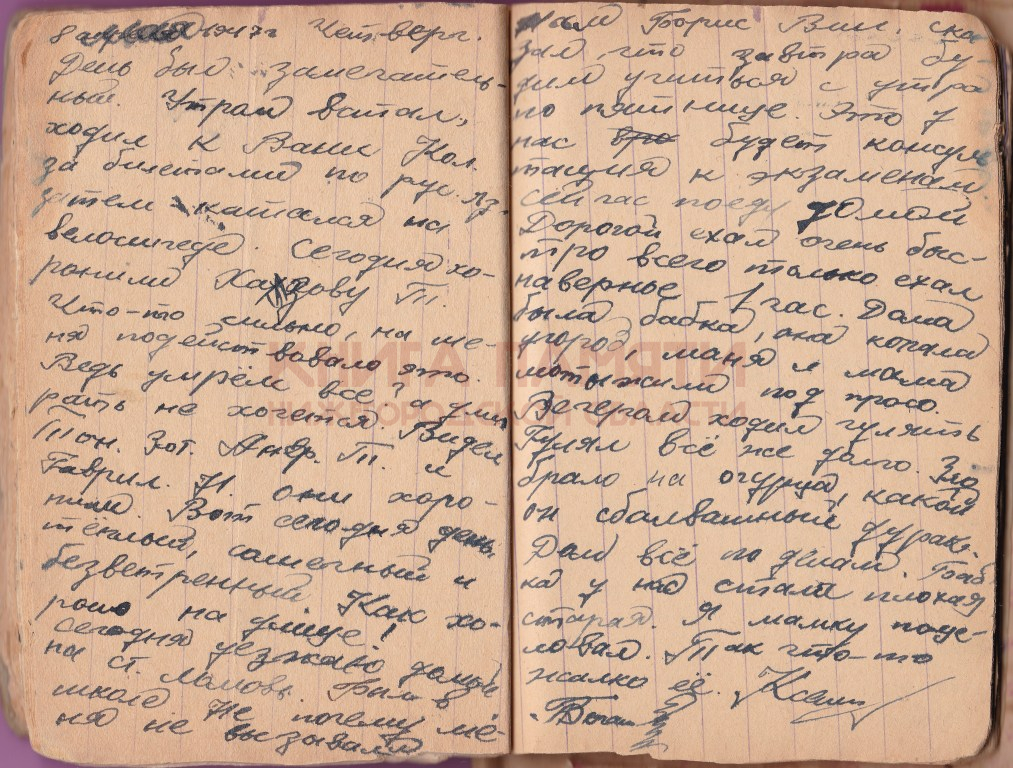 8 июня Четверг.
День был замечатель-
ный. Утром встал,
ходил к Ване Кол.
за билетами по рус. яз.
затем катался на
велосипеде. Сегодня хо-
ронили Хазову П.
Что-то сильно, на ме-
ня подействовало это.
Ведь умрём все? А уми
рать не хочется. Видел
Тон. Зот. Анф. П. и
Гаврил. Н. они хоро-
нили. Вот сегодня день
тёплый, солнечный и
безветренный. Как хо-
рошо на улице!
сегодня уезжаю домой
на ст. Ломовь. Был в
школе Не почему ме-
ня не вызывали
нам Борис Вин. ска
зал, что завтра бу-
дим учиться с утра
по пятнице. Это 7
нас будет консуль
тация к экзаменам
сейчас поеду домой
Дорогой ехал очень быс-
тро всего только ехал
наверное 1 час. Дома
была бабка, она копала
огород, маня и мама
мотыжили под просо.
Вечером ходил гулять
Гулял всё же долго. Зло
брало на огурца, какой
он сбалвашный дурак.
Дом всё по делам. Баб
ка у нас стала плохая
старая. Я мамку поце-
ловал. Так что-то
жалко её.
КНИГА ПАМЯТИ
НИЖЕГОРОДСКОЙ ОБЛАСТИ